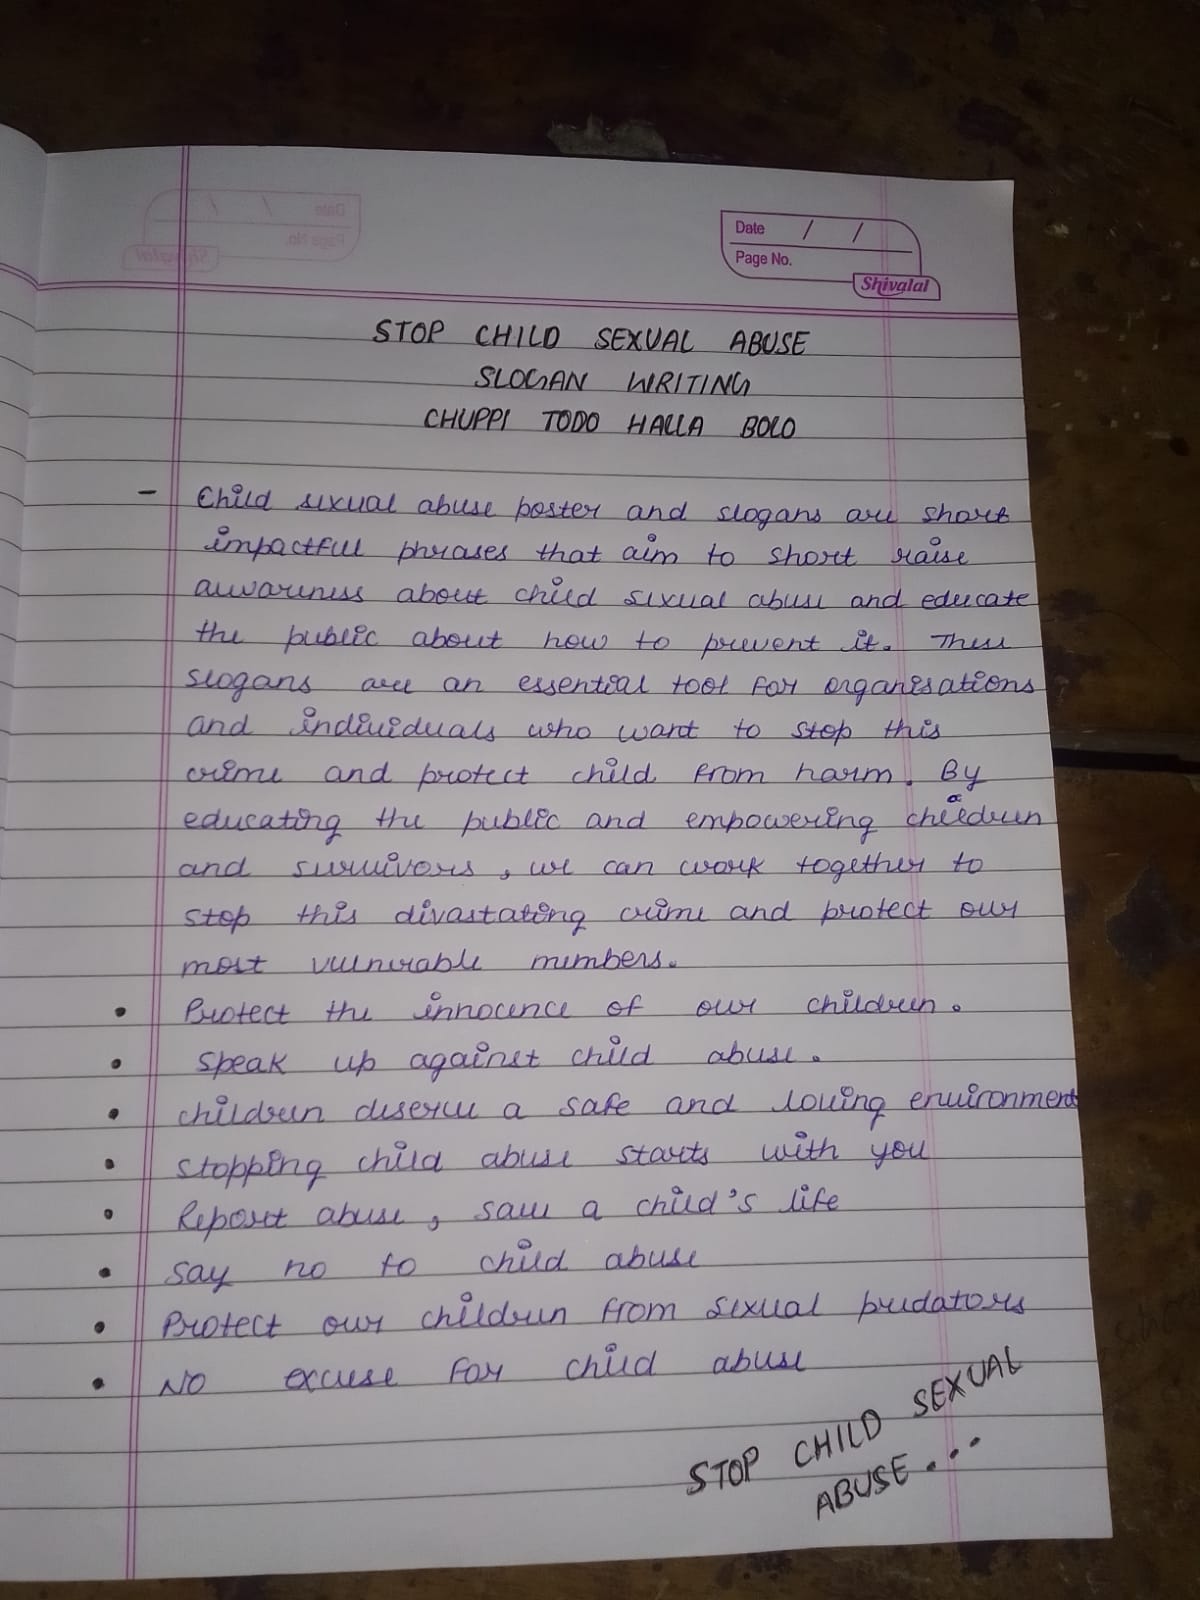 Date / /
Page No.
Shivalal
STOP CHILD SEXUAL ABUSE
SLOGAN WRITING
CHUPPI TODO HALLA BOLO
- Child sexual abuse poster and slogans are short
impactful phrases that aim to short raise
awareness about child sexual abuse and educate
the public about how to prevent it. These
slogans are an essential tool for organisations
and individuals who want to stop this
crime and protect child from harm. By
educating the public and empowering children
and survivors, we can work together to
stop this divastating crime and protect our
most vulnerable members.
• Protect the innocence of our children.
• Speak up against child abuse.
• children deserve a safe and loving environment
• stopping child abuse starts with you
• Report abuse, save a child's life
• Say no to child abuse
• Protect our children from sexual predators
• NO excuse for child abuse
STOP CHILD SEXUAL
ABUSE...